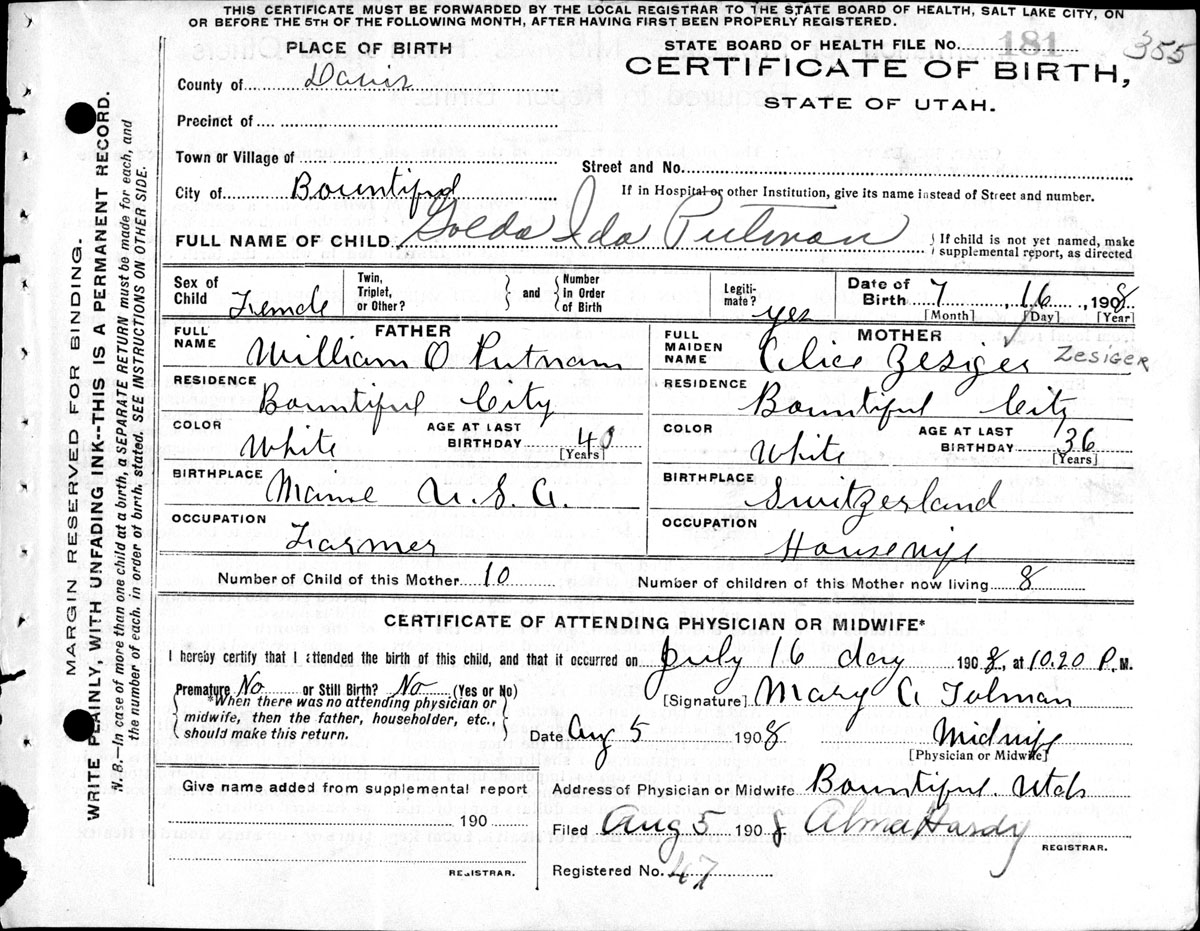 THIS CERTIFICATE MUST BE FORWARDED BY THE LOCAL REGISTRAR TO THE STATE BOARD OF HEALTH, SALT LAKE CITY, ON
OR BEFORE THE 5TH OF THE FOLLOWING MONTH, AFTER HAVING FIRST BEEN PROPERLY REGISTERED.
MARGIN RESERVED FOR BINDING.
WRITE PLAINLY, WITH UNFADING INK--THIS IS A PERMANENT RECORD.
N. B.—In case of more than one child at a birth, a SEPARATE RETURN must be made for each, and
the number of each, in order of birth, stated. SEE INSTRUCTIONS ON OTHER SIDE.
PLACE OF BIRTH
STATE BOARD OF HEALTH FILE No. 181 355
County of Davis
CERTIFICATE OF BIRTH,
STATE OF UTAH.
Precinct of
Town or Village of
Street and No.
City of Bountiful
If in Hospital or other Institution, give its name instead of Street and number.
FULL NAME OF CHILD Golda Ida Putman
If child is not yet named, make
supplemental report, as directed
Sex of Child Female Twin, Triplet, or Other? and Number in Order of Birth Legiti-mate? yes Date of Birth 7, 16, 1908
[Month] [Day] [Year]
FATHER
FULL NAME William O Putnam
RESIDENCE Bountiful City
COLOR White AGE AT LAST BIRTHDAY 40 [Years]
BIRTHPLACE Maine U. S. A.
OCCUPATION Farmer
MOTHER
FULL MAIDEN NAME Elice Zesiger ZESIGER
RESIDENCE Bountiful City
COLOR White AGE AT LAST BIRTHDAY 36 [Years]
BIRTHPLACE Switzerland
OCCUPATION Housewife
Number of Child of this Mother 10 Number of children of this Mother now living 8
CERTIFICATE OF ATTENDING PHYSICIAN OR MIDWIFE*
I hereby certify that I attended the birth of this child, and that it occurred on July 16 day 1908, at 10.20 P. M.
Premature No or Still Birth? No (Yes or No)
*When there was no attending physician or
midwife, then the father, householder, etc.,
should make this return.
[Signature] Mary A Tolman
Date Aug 5 1908 Midwife
[Physician or Midwife]
Give name added from supplemental report
190
REGISTRAR.
Address of Physician or Midwife Bountiful Utah
Filed Aug 5 1908 Alma Hardy
REGISTRAR.
Registered No. 47